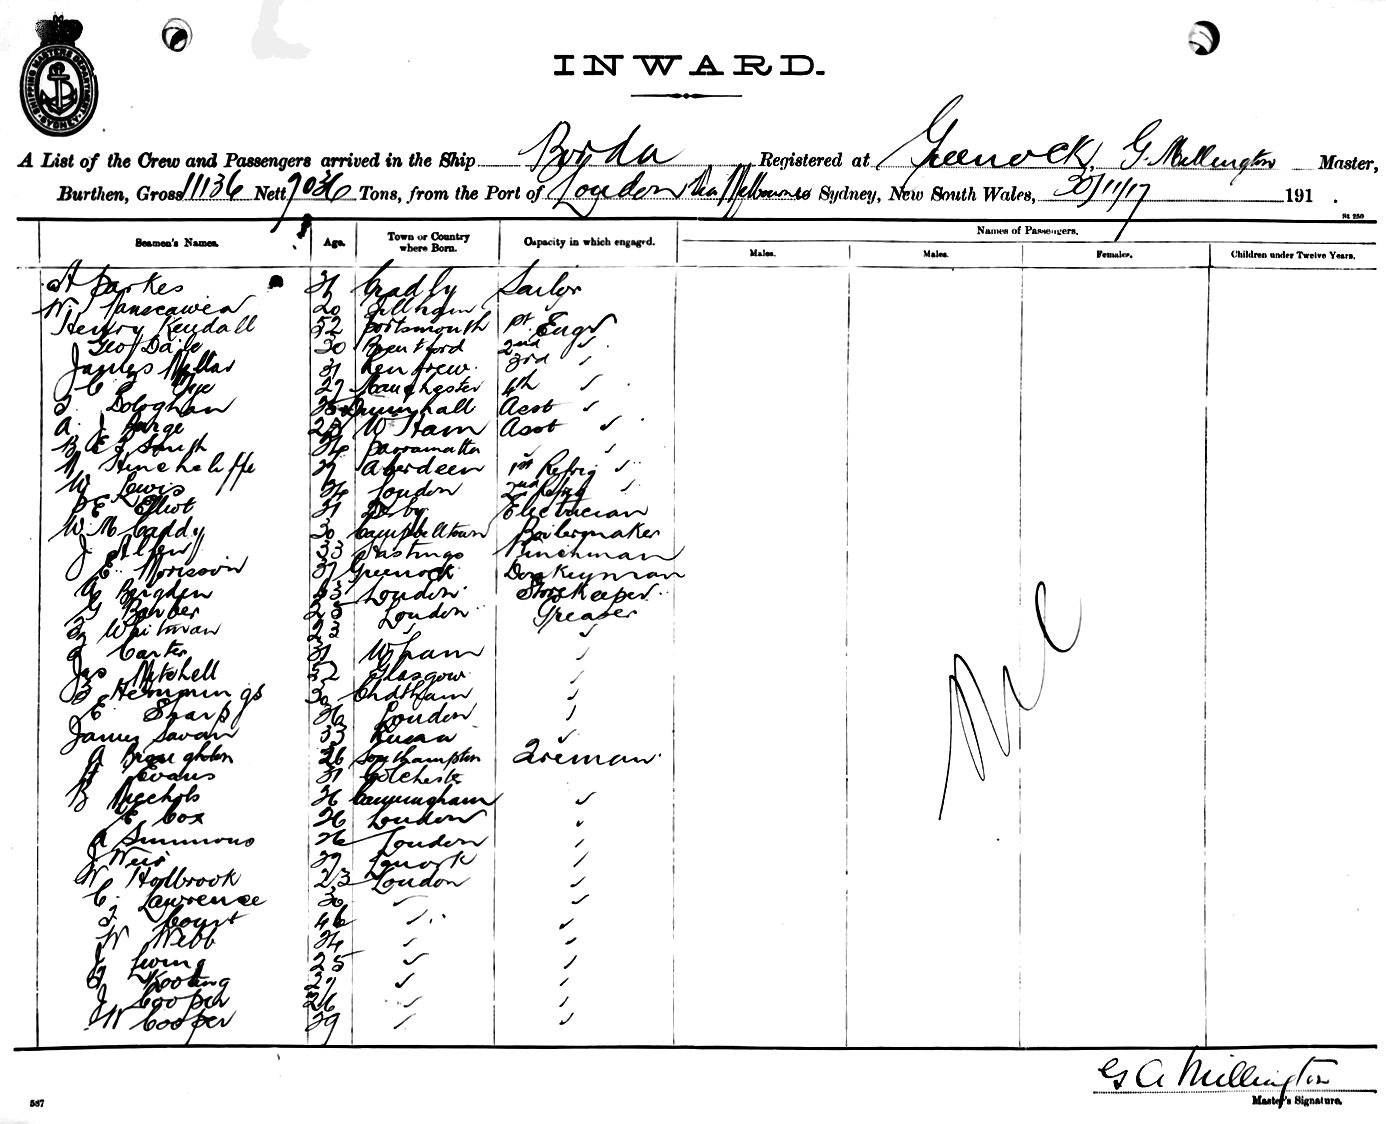 SHIPPING MASTERS DEPARTMENT SYDNEY
INWARD.
A List of the Crew and Passengers arrived in the Ship Borda Registered at Greenock, G. Millington Master,
Burthen, Gross 11136 Nett 7036 Tons, from the Port of London via Melbourne Sydney, New South Wales, 30/11/17 191 .
St 250
Seamen's Names. Age. Town or Country where Born. Capacity in which engaged. Names of Passengers.
Males. Males. Females. Children under Twelve Years.
A Parkes 31 Cradly Sailor
W. 20 Gillham
Henry Kendall 52 Portsmouth 1st Engr
Geo Dale 30 Brentford 2nd ✓
James Millar 31 Renfrew 3rd ✓
C E Dye 27 Manchester 4th ✓
Dologhan Asst ✓
A. J Barge 23 W Ham Asst ✓
B E J Smith 34 Parramatta ✓ ✓
N Hinchcliffe 37 Aberdeen 1st Refrig ✓
W Lewis 34 London 2nd Refrig ✓
E Elliot 31 Derby Electrician
W. McCaddy 30 Campbelltown Boilermaker
J Allen 33 Hastings Winchman
E Morrison 37 Greenock Donkeyman
A Brigden 33 London Storekeeper
G Barber 28 London Greaser
Waitman 23 ✓ ✓
J Carter 31 W ham ✓
Jas Mitchell 52 Glasgow ✓
Hemmings 30 Chatham ✓
E Sharp 36 London ✓
James Savan 33 Russia ✓
A Broughton 26 Southampton Fireman
H Evans 31 Colchester
B Nechols 36 Cunningham ✓
E Cox 26 London ✓
A Simmons 26 London ✓
J Weir 39 Lanark ✓
W Holbrook 23 London ✓
C. Lawrence 30 ✓ ✓
Court 46 ✓ ✓
W Webb 34 ✓ ✓
J Ewing 25 ✓ ✓
Kooting 27 ✓ ✓
J Cooper 26 ✓ ✓
W Cooper 39 ✓ ✓
Nil
G A Millington
Master's Signature.
567